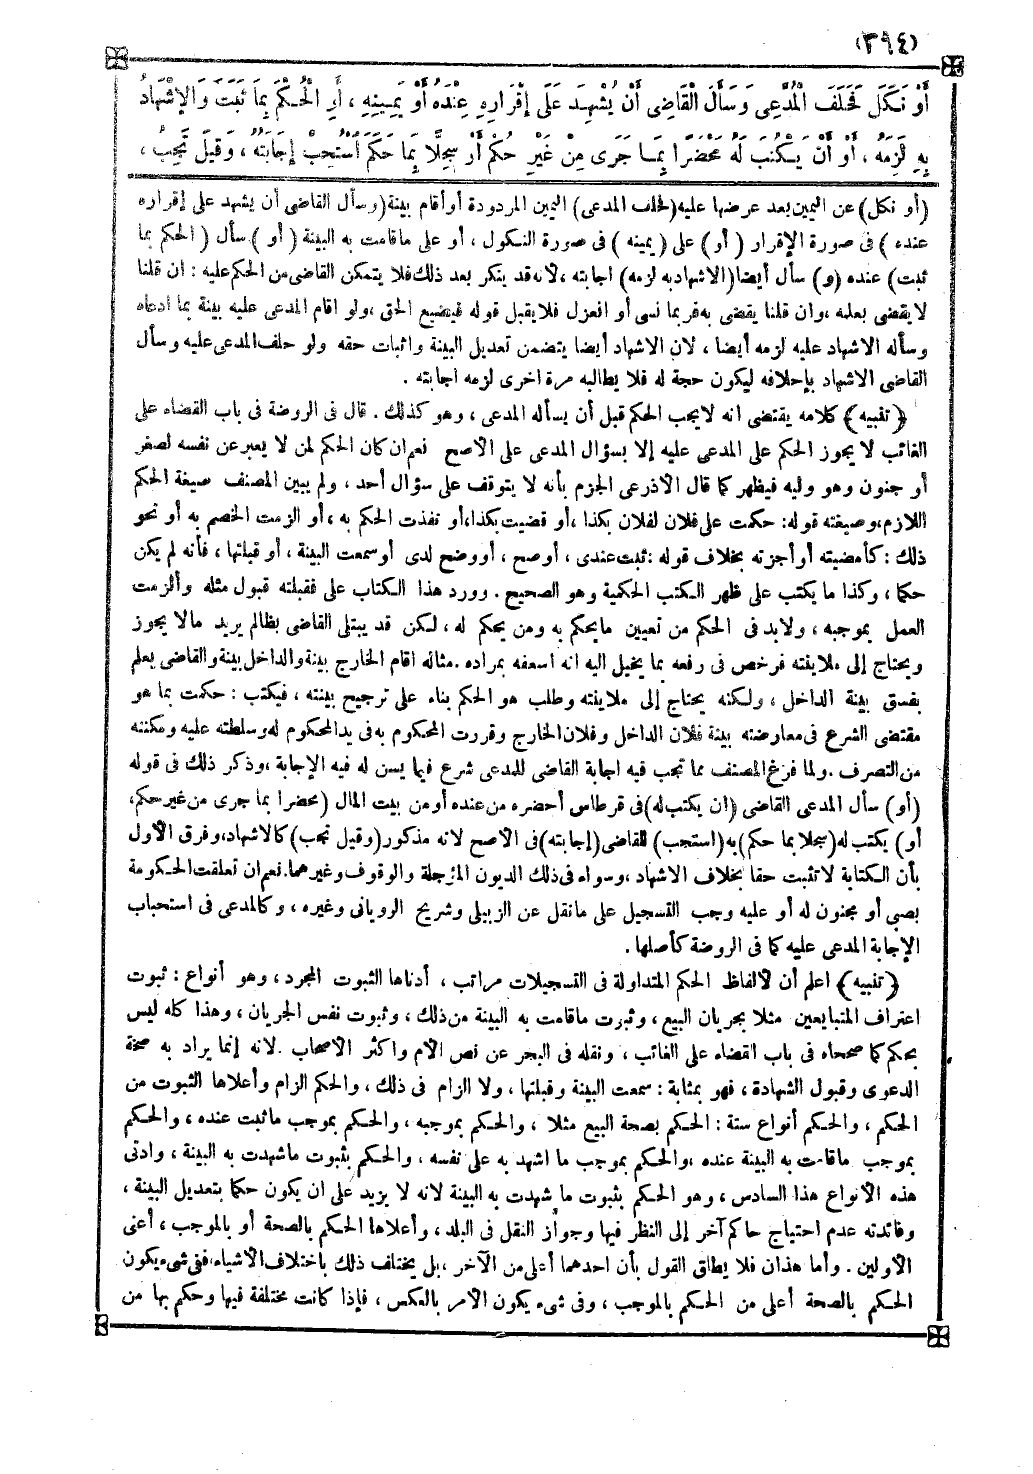 (٣٩٤)
أَوْ نَكَلَ فَحَلَفَ الْمُدَّعِي وَسَأَلَ الْقَاضِيَ أَنْ يُشْهِدَ عَلَى إقْرَارِهِ عِنْدَهُ أَوْ يَمِينِهِ ، أَوِ الْحُكْمَ بِمَا ثَبَتَ وَالإِشْهَادَ
بِهِ لَزِمَهُ ، أَوْ أَنْ يَكْتُبَ لَهُ مَحْضَرًا بِمَا جَرَى مِنْ غَيْرِ حُكْمٍ أَوْ سِجِلًّا بِمَا حَكَمَ اسْتُحِبَّ إجَابَتُهُ ، وَقِيلَ تَجِبُ ،
(أو نكل) عن اليمين بعد عرضها عليه (فحلف المدعى) اليمين المردودة أو أقام بينة (وسأل القاضى أن يشهد على إقراره
عنده ) فى صورة الإقرار ( أو ) على (يمينه ) فى صورة النكول ، أو على ما قامت به البينة ( أو ) سأل ( الحكم بما
ثبت) عنده (و) سأل أيضا (الاشهاد به لزمه) اجابته ، لأنه قد ينكر بعد ذلك فلا يتمكن القاضى من الحكم عليه : ان قلنا
لا يقضى بعلمه ، وان قلنا يقضى به فربما نسى أو انعزل فلا يقبل قوله فيضيع الحق ، ولو اقام المدعى عليه بينة بما ادعاه
وسأله الاشهاد عليه لزمه أيضا ، لان الاشهاد أيضا يتضمن تعديل البينة واثبات حقه ولو حلف المدعى عليه وسأل
القاضى الاشهاد بإحلافه ليكون حجة له فلا يطالبه مرة اخرى لزمه اجابته .
﴿ تنبيه ﴾ كلامه يقتضى انه لا يجب الحكم قبل أن يسأله المدعى ، وهو كذلك . قال فى الروضة فى باب القضاء على
الغائب لا يجوز الحكم على المدعى عليه إلا بسؤال المدعى على الأصح نعم ان كان الحكم لمن لا يعبر عن نفسه لصغر
أو جنون وهو وليه فيظهر كما قال الاذرعى الجزم بأنه لا يتوقف على سؤال أحد ، ولم يبين المصنف صيغة الحكم
اللازم ، وصيغته قوله : حكمت على فلان لفلان بكذا ، أو قضيت بكذا ، أو نفذت الحكم به ، أو الزمت الخصم به أو نحو
ذلك : كأمضيته أو أجزته بخلاف قوله : ثبت عندى ، أو صح ، أو وضح لدى أو سمعت البينة ، أو قبلتها ، فأنه لم يكن
حكما ، وكذا ما يكتب على ظهر الكتب الحكمية وهو الصحيح . وورد هذا الكتاب على فقبلته قبول مثله وألزمت
العمل بموجبه ، ولابد فى الحكم من تعيين ما يحكم به ومن يحكم له ، لكن قد يبتلى القاضى بظالم يريد مالا يجوز
ويحتاج إلى ملاينته فرخص فى رفعه بما يخيل اليه انه اسعفه بمراده . مثاله اقام الخارج بينة والداخل بينة والقاضى يعلم
بفسق بينة الداخل ، ولكنه يحتاج إلى ملاينته وطلب هو الحكم بناء على ترجيح بينته ، فيكتب : حكمت بما هو
مقتضى الشرع فى معارضته بينة فلان الداخل وفلان الخارج وقررت المحكوم به فى يد المحكوم له وسلطته عليه ومكنته
من التصرف . ولما فرغ المصنف مما تجب فيه اجابة القاضى للمدعى شرع فيما يسن له فيه الإجابة ، وذكر ذلك فى قوله
(أو) سأل المدعى القاضى (ان يكتب له) فى قرطاس أحضره من عنده أو من بيت المال (محضرا بما جرى من غير حكم،
أو) يكتب له (سجلا بما حكم) به (استحب) للقاضى (إجابته) فى الأصح لأنه مذكور (وقيل تجب) كالاشهاد ، وفرق الأول
بأن الكتابة لا تثبت حقا بخلاف الاشهاد ، وسواء فى ذلك الديون المؤجلة والوقوف وغيرهما . نعم ان تعلقت الحكومة
بصبى أو مجنون له أو عليه وجب التسجيل على ما نقل عن الزبيلى وشريح الرويانى وغيره ، وكالمدعى فى استحباب
الإجابة المدعى عليه كما فى الروضة كأصلها .
﴿ تنبيه ﴾ اعلم أن لألفاظ الحكم المتداولة فى التسجيلات مراتب ، أدناها الثبوت المجرد ، وهو أنواع : ثبوت
اعتراف المتبايعين مثلا بجريان البيع ، وثبوت ما قامت به البينة من ذلك ، وثبوت نفس الجريان ، وهذا كله ليس
بحكم كما صححاه فى باب القضاء على الغائب ، ونقله فى البحر عن نص الأم واكثر الأصحاب . لانه إنما يراد به صحة
الدعوى وقبول الشهادة ، فهو بمثابة : سمعت البينة وقبلتها ، ولا الزام فى ذلك ، والحكم الزام وأعلاها الثبوت من
الحكم ، والحكم أنواع ستة : الحكم بصحة البيع مثلا ، والحكم بموجبه ، والحكم بموجب ما ثبت عنده ، والحكم
بموجب ما قامت به البينة عنده ، والحكم بموجب ما اشهد به على نفسه ، والحكم بثبوت ما شهدت به البينة ، وادنى
هذه الأنواع هذا السادس ، وهو الحكم بثبوت ما شهدت به البينة لانه لا يزيد على ان يكون حكما بتعديل البينة ،
وفائدته عدم احتياج حاكم آخر إلى النظر فيها وجواز النقل فى البلد ، وأعلاها الحكم بالصحة أو بالموجب ، أعنى
الأولين . وأما هذان فلا يطلق القول بأن احدهما أعلى من الآخر ، بل يختلف ذلك باختلاف الأشياء ، ففى شىء يكون
الحكم بالصحة أعلى من الحكم بالموجب ، وفى شىء يكون الأمر بالعكس ، فإذا كانت مختلفة فيها وحكم بها من